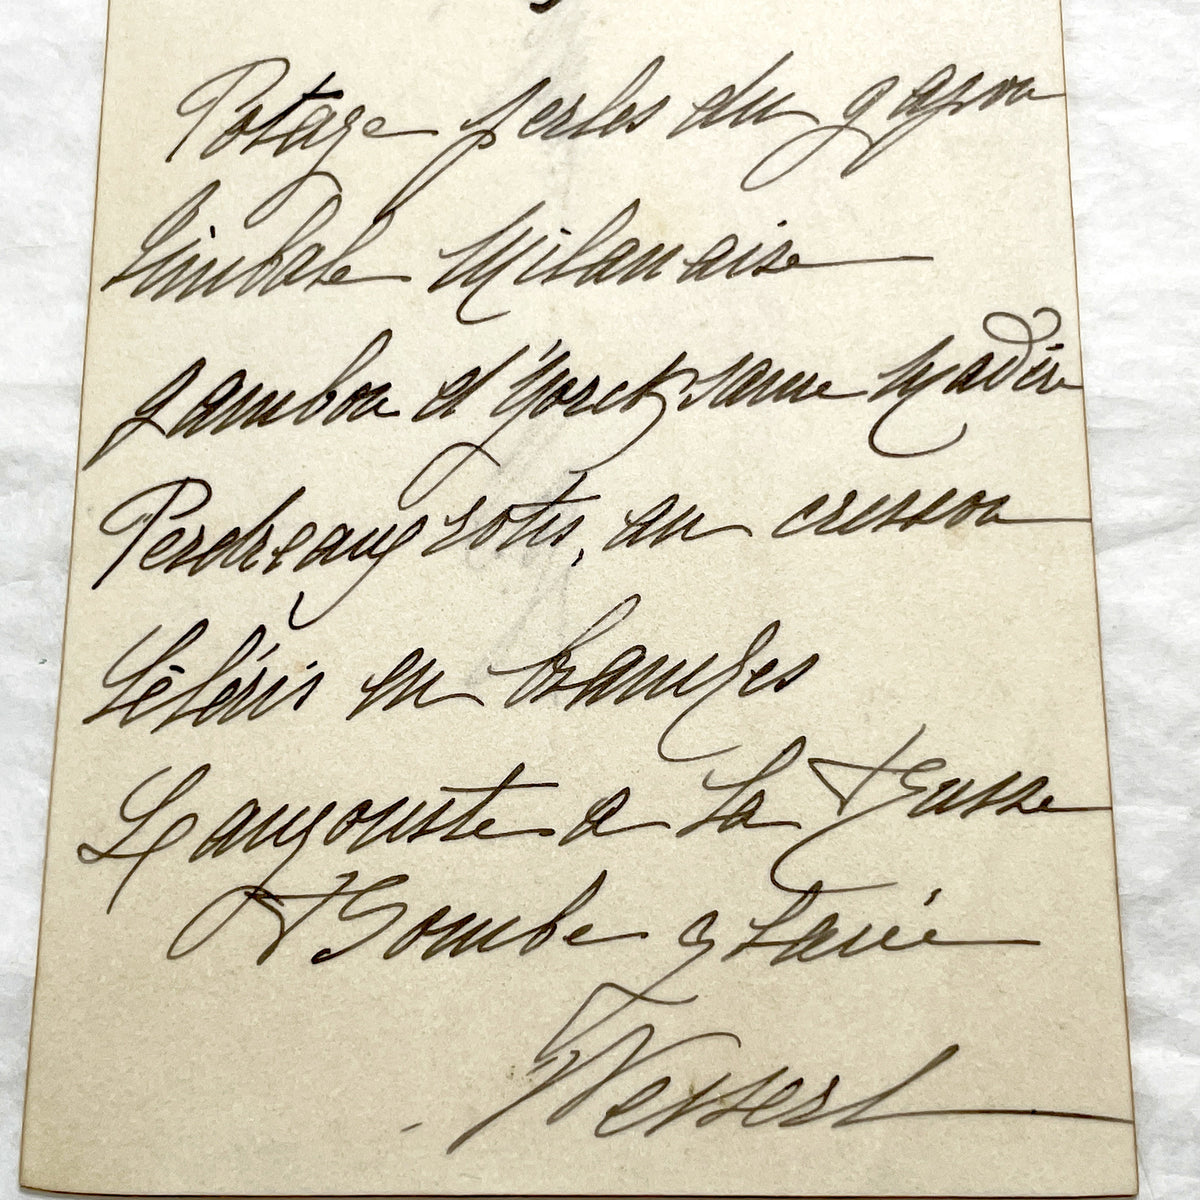 Potage perles du Japon
Timbale Milanaise
Jambon d'Yorck sauce Madère
Perdreaux rotis, au cresson
Céléris en branches
Langouste a la Russe
Bombe glacée
Dessert